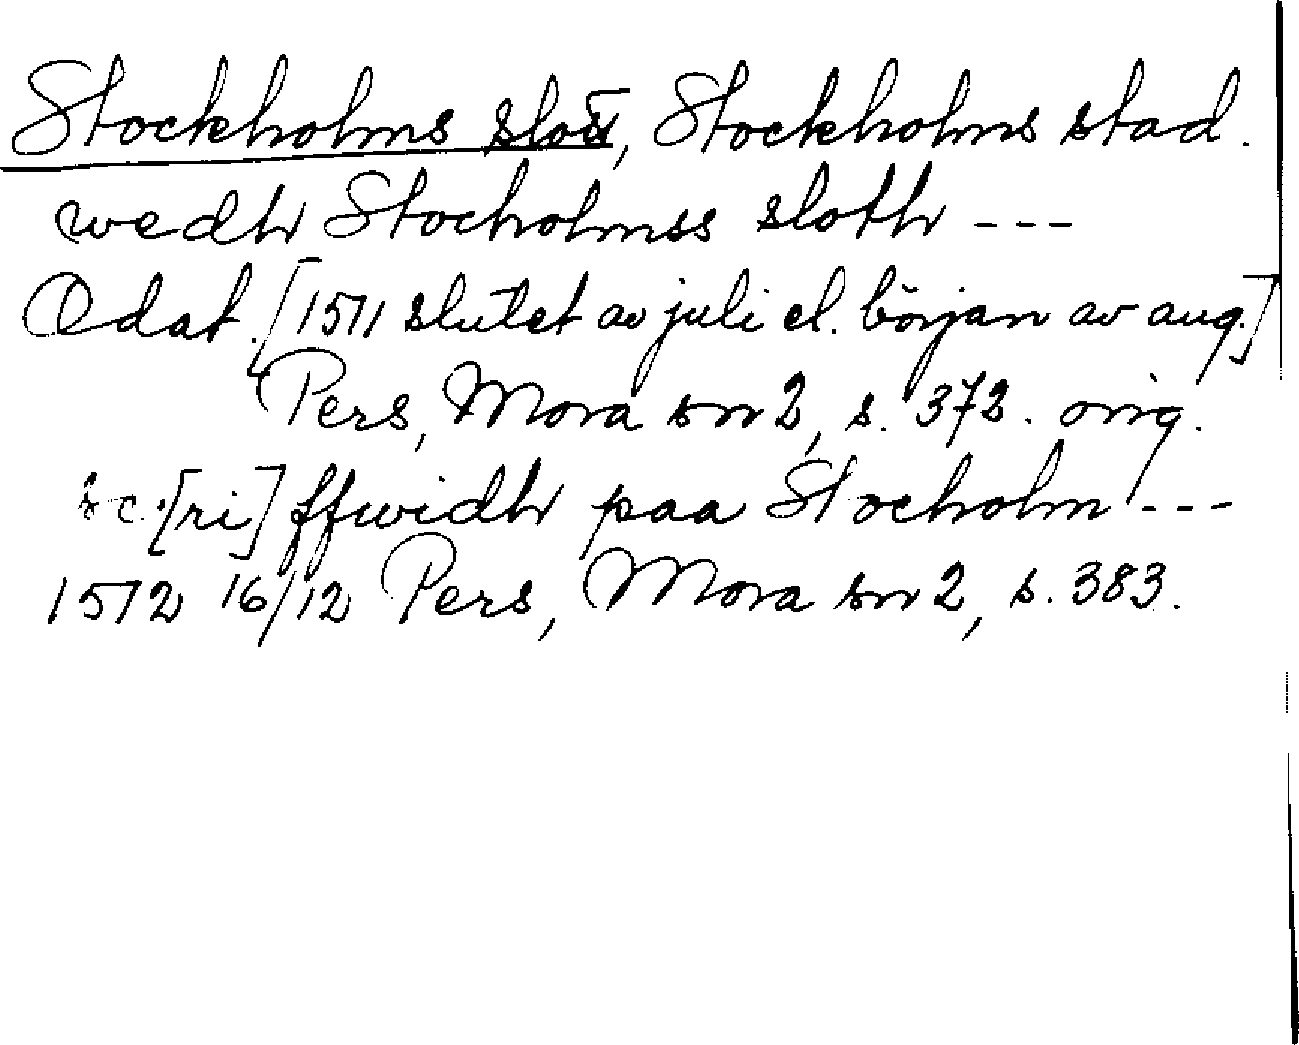 Stockholms slott, Stockholms stad.
wedh Stocholmss sloth ---
Odat. [1571 slutet av juli el. början av aug.]
Pers, Mora sn 2, s. 372. orig.
sc.[ri]ffwidh paa Stocholm ---
1572 16/12 Pers, Mora sn 2, s. 383.